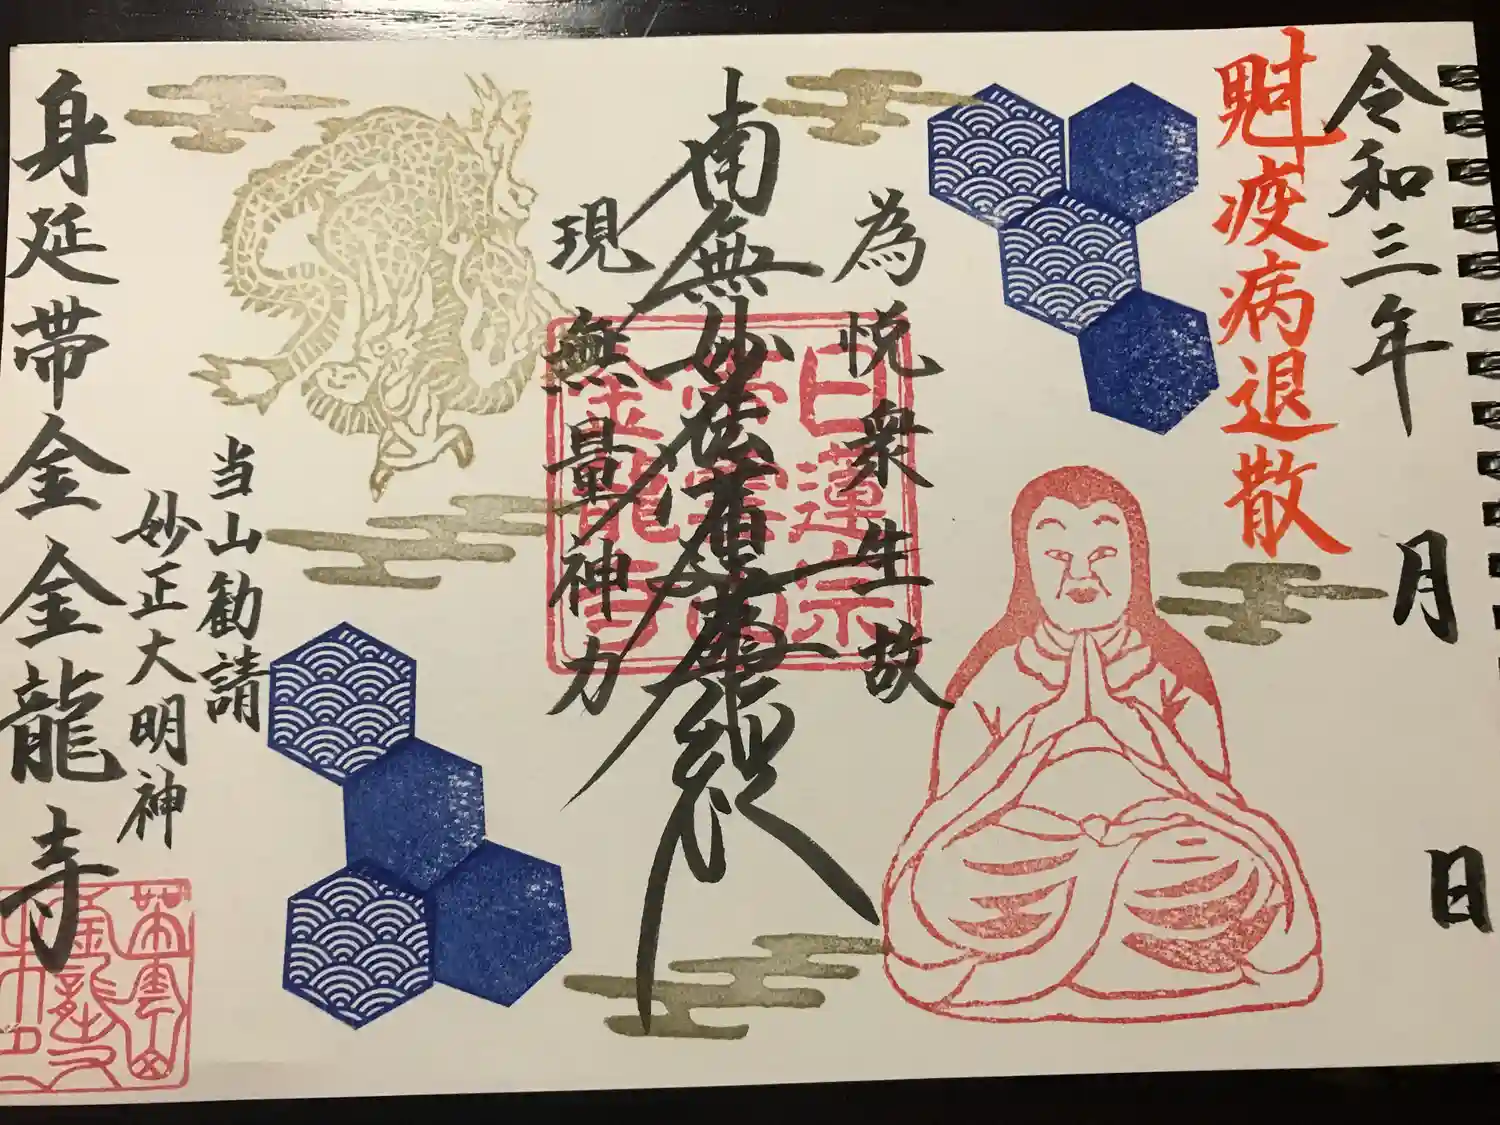 令和三年 月 日
魁疫病退散
為悦衆生故
南無妙法蓮華経
現無量神力
日蓮宗
金龍寺
当山勧請
妙正大明神
身延帯金金龍寺